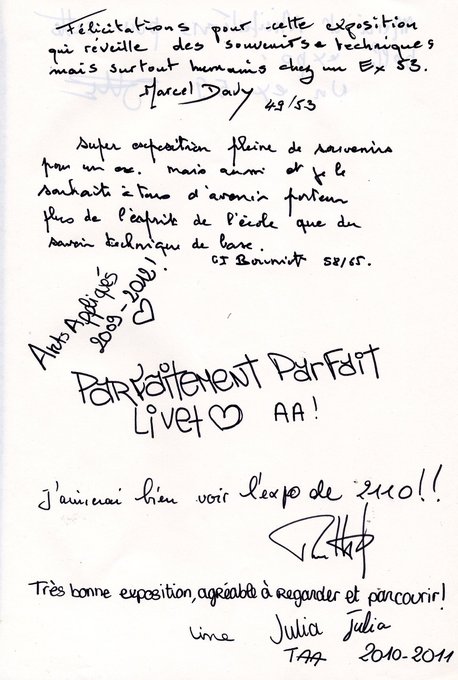 Félicitations pour cette exposition
qui réveille des souvenirs techniques
mais surtout humains chez un Ex 53.
Marcel Davy 49/53
Super exposition pleine de souvenirs
pour un ex. mais aussi et je le
souhaite à tous d'avenir porteur
plus de l'esprit de l'école que du
savoir technique de base.
58/65.
Arts Appliqués
2009-2012! ♡
Parfaitement Parfait
Livet ♡ AA!
J'aimerai bien voir l'expo de 2110!!
Très bonne exposition, agréable à regarder et parcourir!
Line Julia Julia
TAA 2010-2011